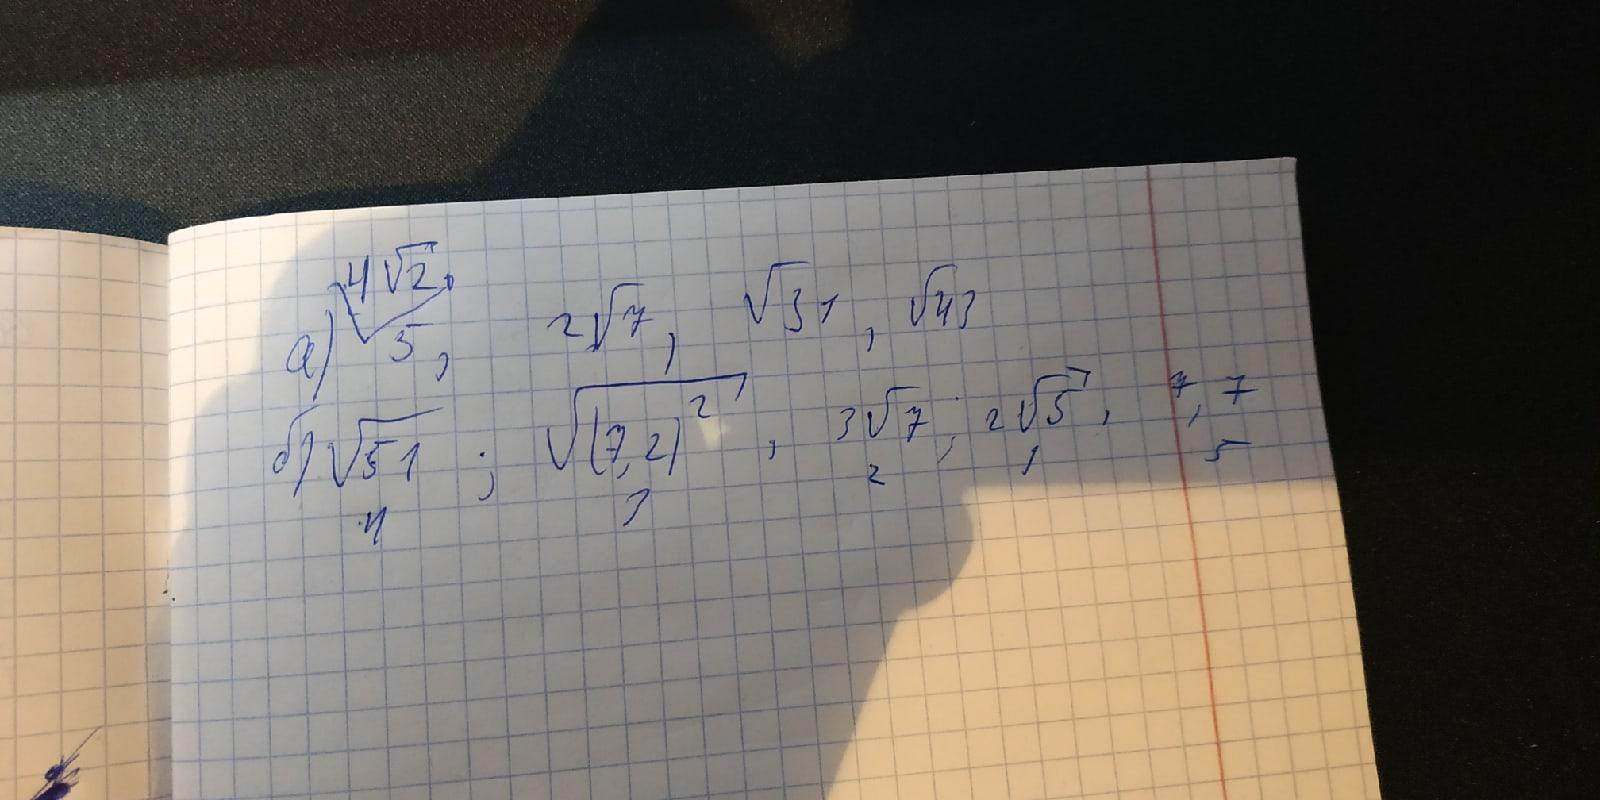 4√2
а) 5, 2√7, √31, √43
б) √51; √(7,2)², 3√7; 2√5, 7,7
4 3 2 1 5